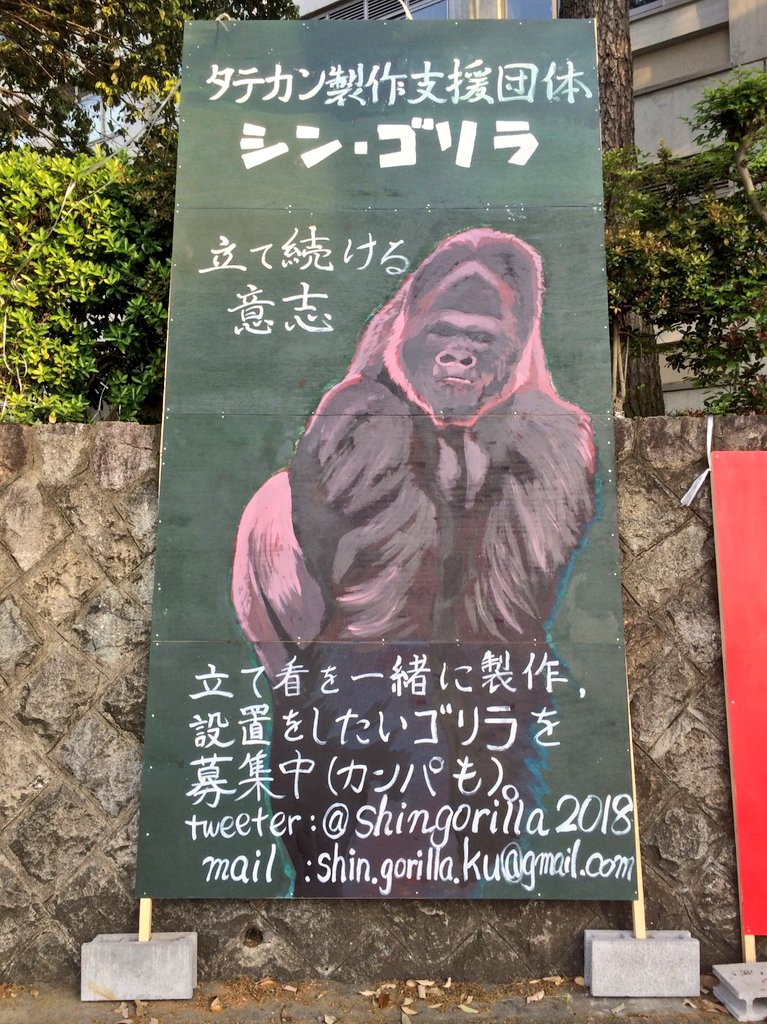 タテカン製作支援団体
シン・ゴリラ
立て続ける
意志
立て看を一緒に製作,
設置をしたいゴリラを
募集中(カンパも)。
tweeter:@shingorilla2018
mail :shin.gorilla.ku@gmail.com